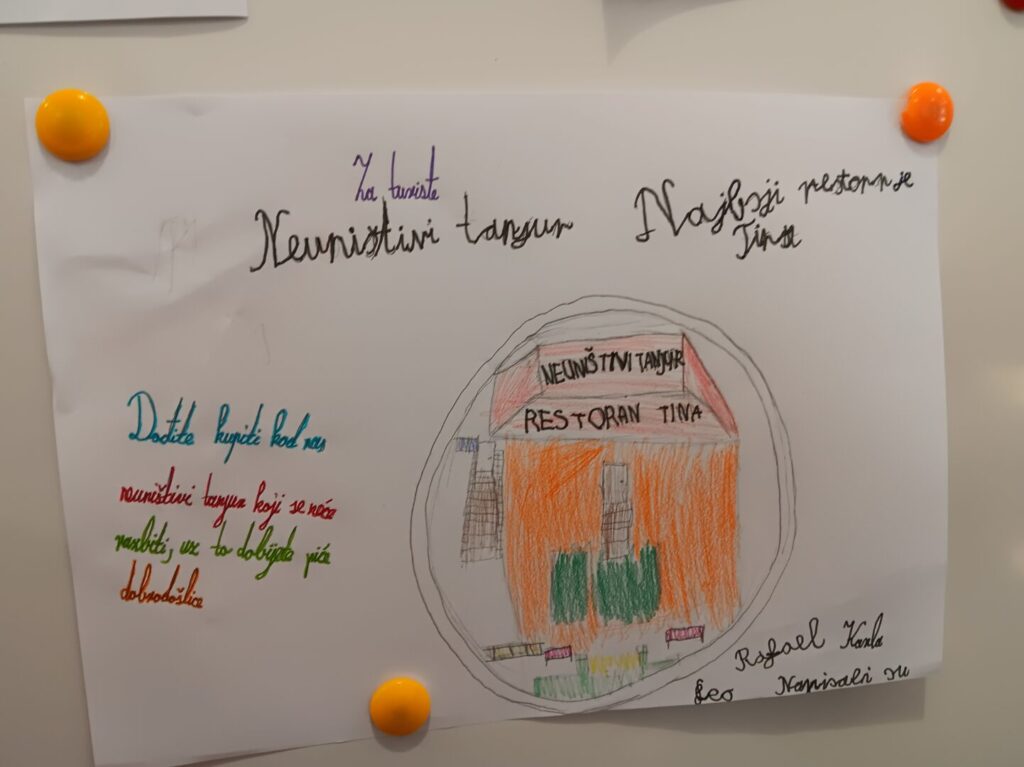 Za turiste
Neuništivi tanjur
Najbolji restoran je
Tina
NEUNIŠTIVI TANJUR
RESTORAN TINA
Dođite kupiti kod nas
neuništivi tanjur koji se neće
razbiti, uz to dobijete piće
dobrodošlice
Rafael Karla
Leo Napisali su